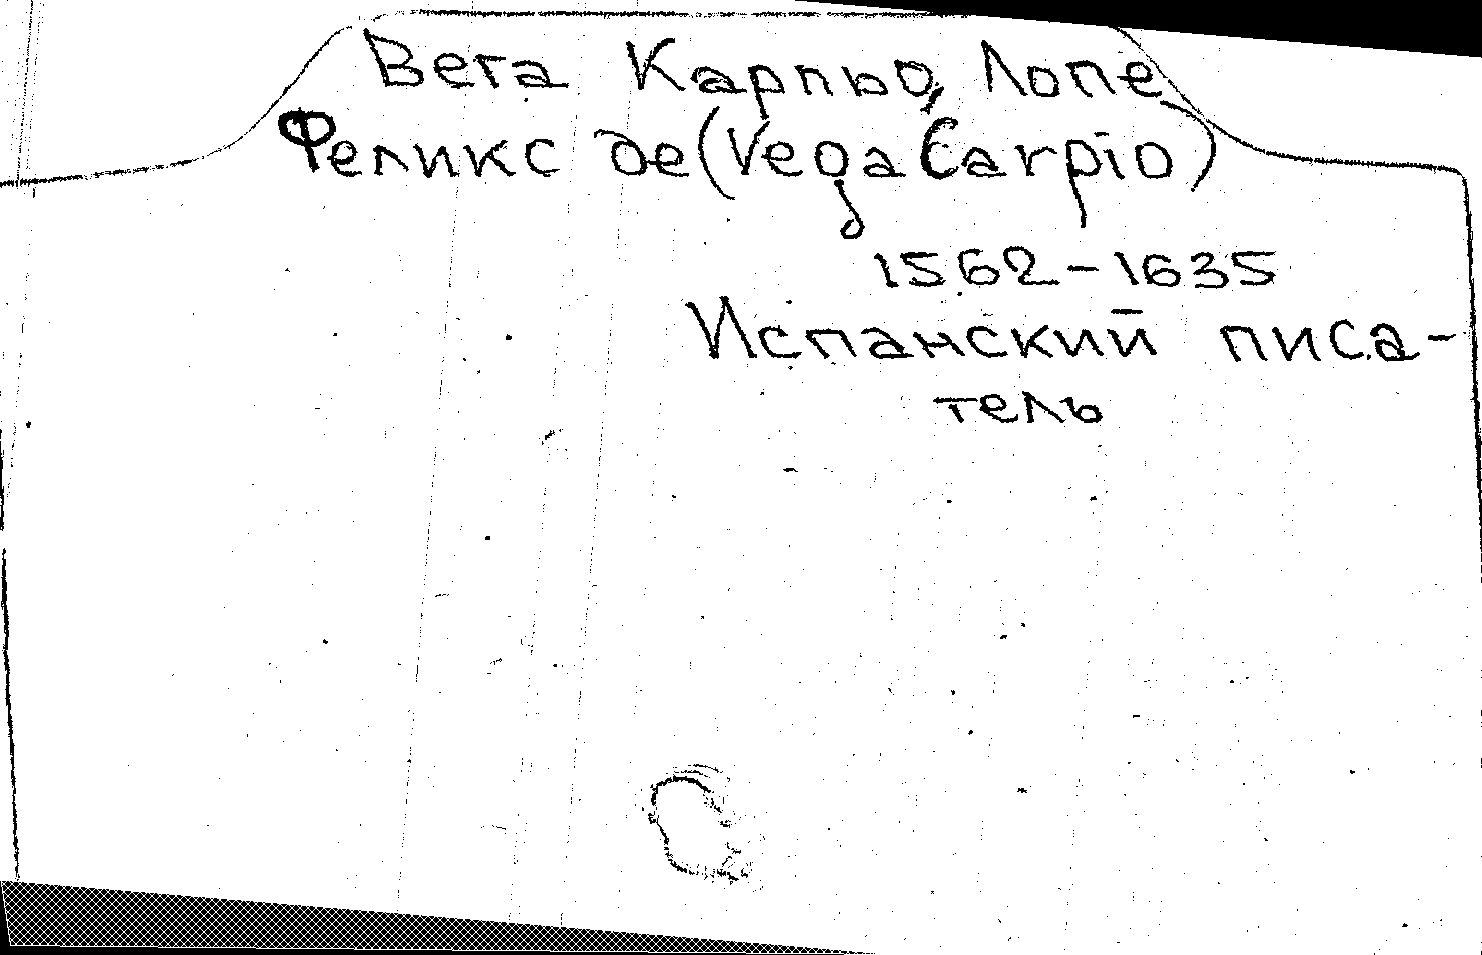 Вега Карпьо, Лопе
Феликс де (Vega Carpio)
1562-1635
Испанский писа-
тель